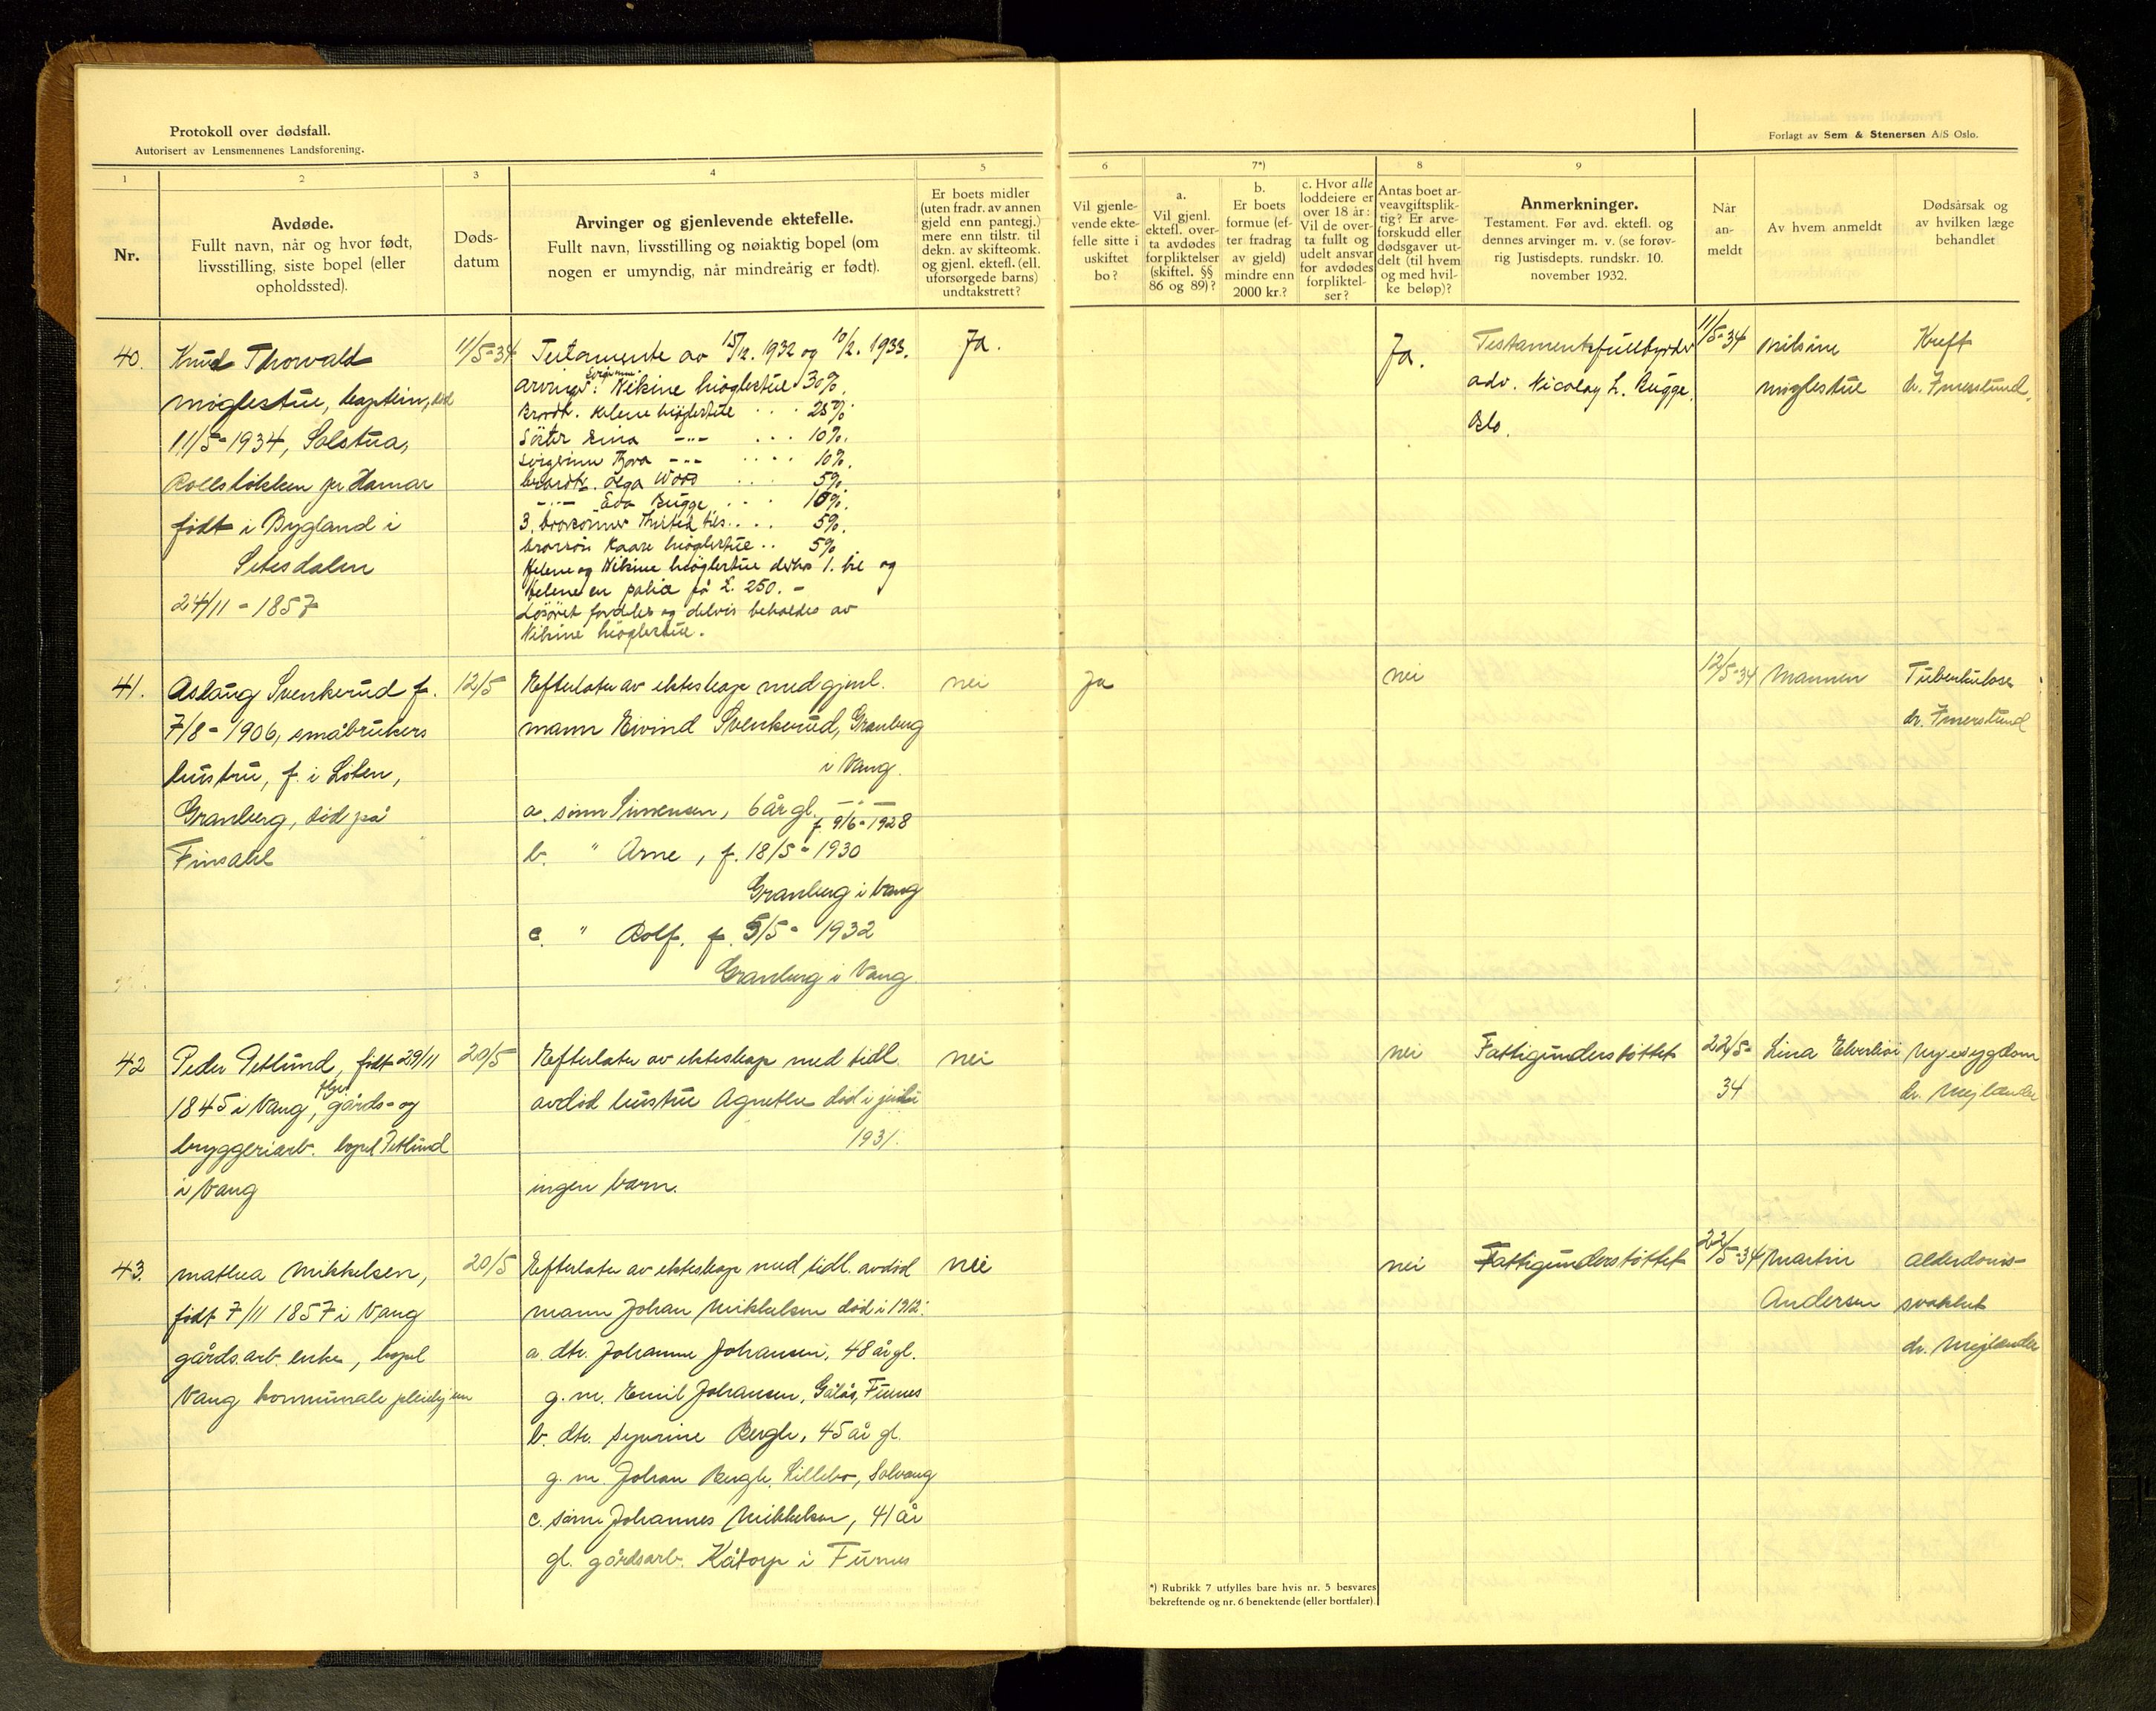 Protokoll over dødsfall.
Autorisert av Lensmennenes Landsforening.
Forlagt av Sem & Stenersen A/S Oslo.
1
2
3
4
5
6
7*)
8
9
Nr.
Avdøde.
Fullt navn, når og hvor født,
livsstilling, siste bopel (eller
opholdssted).
Døds-
datum
Arvinger og gjenlevende ektefelle.
Fullt navn, livsstilling og nøiaktig bopel (om
nogen er umyndig, når mindreårig er født).
Er boets midler
(uten fradr. av annen
gjeld enn pantegj.)
mere enn tilstr. til
dekn. av skifteomk.
og gjenl. ektefl. (ell.
uforsørgede barns)
undtakstrett?
Vil gjenle-
vende ekte-
felle sitte i
uskiftet
bo?
a.
Vil gjenl.
ektefl. over-
ta avdødes
forpliktelser
(skiftel. §§
86 og 89)?
b.
Er boets
formue (ef-
ter fradrag
av gjeld)
mindre enn
2000 kr.?
c. Hvor alle
loddeiere er
over 18 år:
Vil de over-
ta fullt og
udelt ansvar
for avdødes
forpliktel-
ser?
Antas boet ar-
veavgiftsplik-
tig? Er arve-
forskudd eller
dødsgaver ut-
delt (til hvem
og med hvil-
ke beløp)?
Anmerkninger.
Testament. Før avd. ektefl. og
dennes arvinger m. v. (se forøv-
rig Justisdepts. rundskr. 10.
november 1932.
Når
an-
meldt
Av hvem anmeldt
Dødsårsak og
av hvilken læge
behandlet
40.
Knud Thorvald
Møglestue, kaptein, død
11/5-1934, Solstua,
Rollsløkken pr Hamar
født i Bygland i
Setesdalen
24/11 - 1857
11/5-34
Testamente av 15/12. 1932 og 10/2. 1933.
Arvinger: Svigerinne Nikine Møglestue 30%.
Brodt. Helene Møglestue . . . 25%.
Söster Lina -"- . . . 10%.
Svigerinne Thora -"- . . . . 10%.
brordt. Olga Wood . . . 5%.
-"- Eva Bugge . . . 10%.
3 brorsønner Thisted tils. . . . 5%.
brorsön Kaare Möglestue . . 5%
Helene og Nikine Möglestue derhos 1. he og
Helene en police på £. 250.-
Lösöret fordeles og delvis beholdes av
Nikine Möglestue.
Ja.
Ja.
Testamentsfullbyrder
adv. Nicolay L. Bugge,
Oslo.
11/5-34
Nilsine
Møglestue
Kreft
dr. Imerslund.
41.
Aslaug Svenkerud f.
7/8 - 1906, småbrukers
hustru, f. i Løten,
Granberg, død på
Finsahl
12/5
Efterlater av ekteskap med gjenl.
mann Eivind Svenkerud, Granberg
i Vang.
a. sønn Simensen, 6 år gl. -"-
f. 9/6-1928
b. " Arne, f. 18/5-1930
Granberg i Vang
c. " Rolf. f. 5/5- 1932
Granberg i Vang
nei
Ja
nei
12/5-34
Mannen
Tuberkulose
dr. Imerslund
42
Peder Petlund, født 29/11
1845 i Vang, gårds- og
bryggeriarb. bopel Petlund
i Vang
20/5
Efterlater av ekteskap med tidl.
avdød hustru Agnethe død i juli
1931.
ingen barn.
nei
nei
Fattigunderstøttet
22/5-
34
Lina Elverhøi
Nyresygdom
dr. Mejlænder
43.
Mathea Mikkelsen,
født 7/11 1857 i Vang
gårds.arb. enke, bopel
Vang kommunale pleiehjem
20/5
Efterlater av ekteskap med tidl. avdød
mann Johan Mikkelsen død i 1912:
a. dtr. Johanne Johansen, 48 år gl.
g. m. Emil Johansen, Gålås, Furnes
b. dtr. Syverine Bergh, 45 år gl.
g. m. Johan Bergh, Lillebo, Solvang
c. sønn Johannes Mikkelsen, 41 år
gl. gårdsarb. Kåtorp i Furnes
nei
nei
Fattigunderstøttet
22/5-34
Martin
Andersen
Alderdoms-
svakhet
dr. Mejlænder
*) Rubrikk 7 utfylles bare hvis nr. 5 besvares
bekreftende og nr. 6 benektende (eller bortfaler).